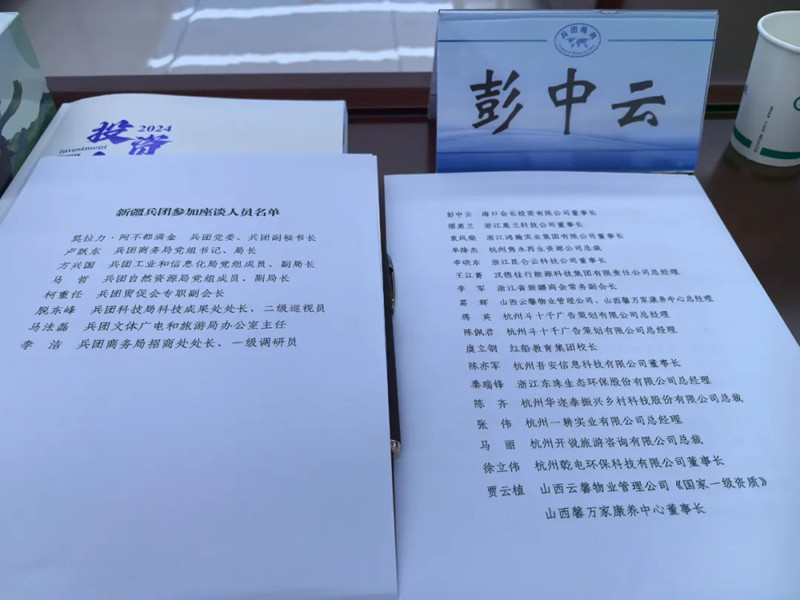 兵团商务
彭中云
2024
投资
Investment
新疆兵团参加座谈人员名单
莫拉力·阿不都满金 兵团党委、兵团副秘书长
卢跃东 兵团商务局党组书记、局长
方兴国 兵团工业和信息化局党组成员、副局长
马 哲 兵团自然资源局党组成员、副局长
柯重任 兵团贸促会专职副会长
脱东峰 兵团科技局科技成果处处长、二级巡视员
马法磊 兵团文体广电和旅游局办公室主任
李 洁 兵团商务局招商处处长、一级调研员
彭中云 海口会长投资有限公司董事长
缪惠兰 浙江惠兰科技公司董事长
袁凤燊 浙江鸿瀚实业集团有限公司董事长
单隆杰 杭州隽永再生资源公司总裁
李晓东 浙江昆仑云科技公司董事长
王江菁 汉德桂行能源科技集团有限责任公司总经理
李 军 浙江省新疆商会常务副会长
葛 辉 山西云馨物业管理公司、山西馨万家康养中心总经理
蒋 英 杭州斗十千广告策划有限公司
陈佩君 杭州斗十千广告策划有限公司
虞立钢 红船教育集团校长
陈亦军 杭州吾安信息科技有限公司董事长
秦瑞锋 浙江东珠生态环保股份有限公司总经理
陈 齐 杭州华逢泰振兴乡村科技股份有限公司总裁
张 伟 杭州一耕实业有限公司总经理
马 丽 杭州开锐旅游咨询有限公司总裁
徐立伟 杭州乾电环保科技有限公司董事长
贾云植 山西云馨物业管理公司《国家一级资质》
山西馨万家康养中心董事长